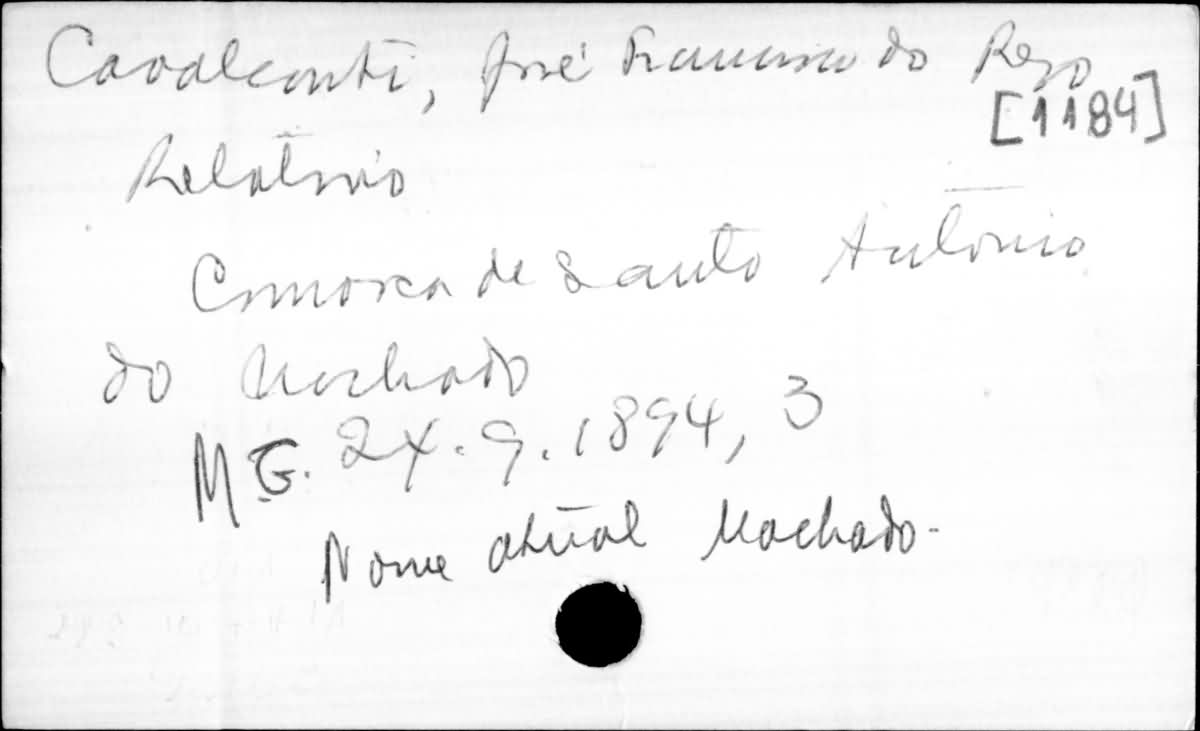 Cavalcanti, José Francisco do Rego
[1184]
Relatório
Comarca de Santo Antônio
do Machado
MG. 24.9.1894, 3
Nome atual Machado.